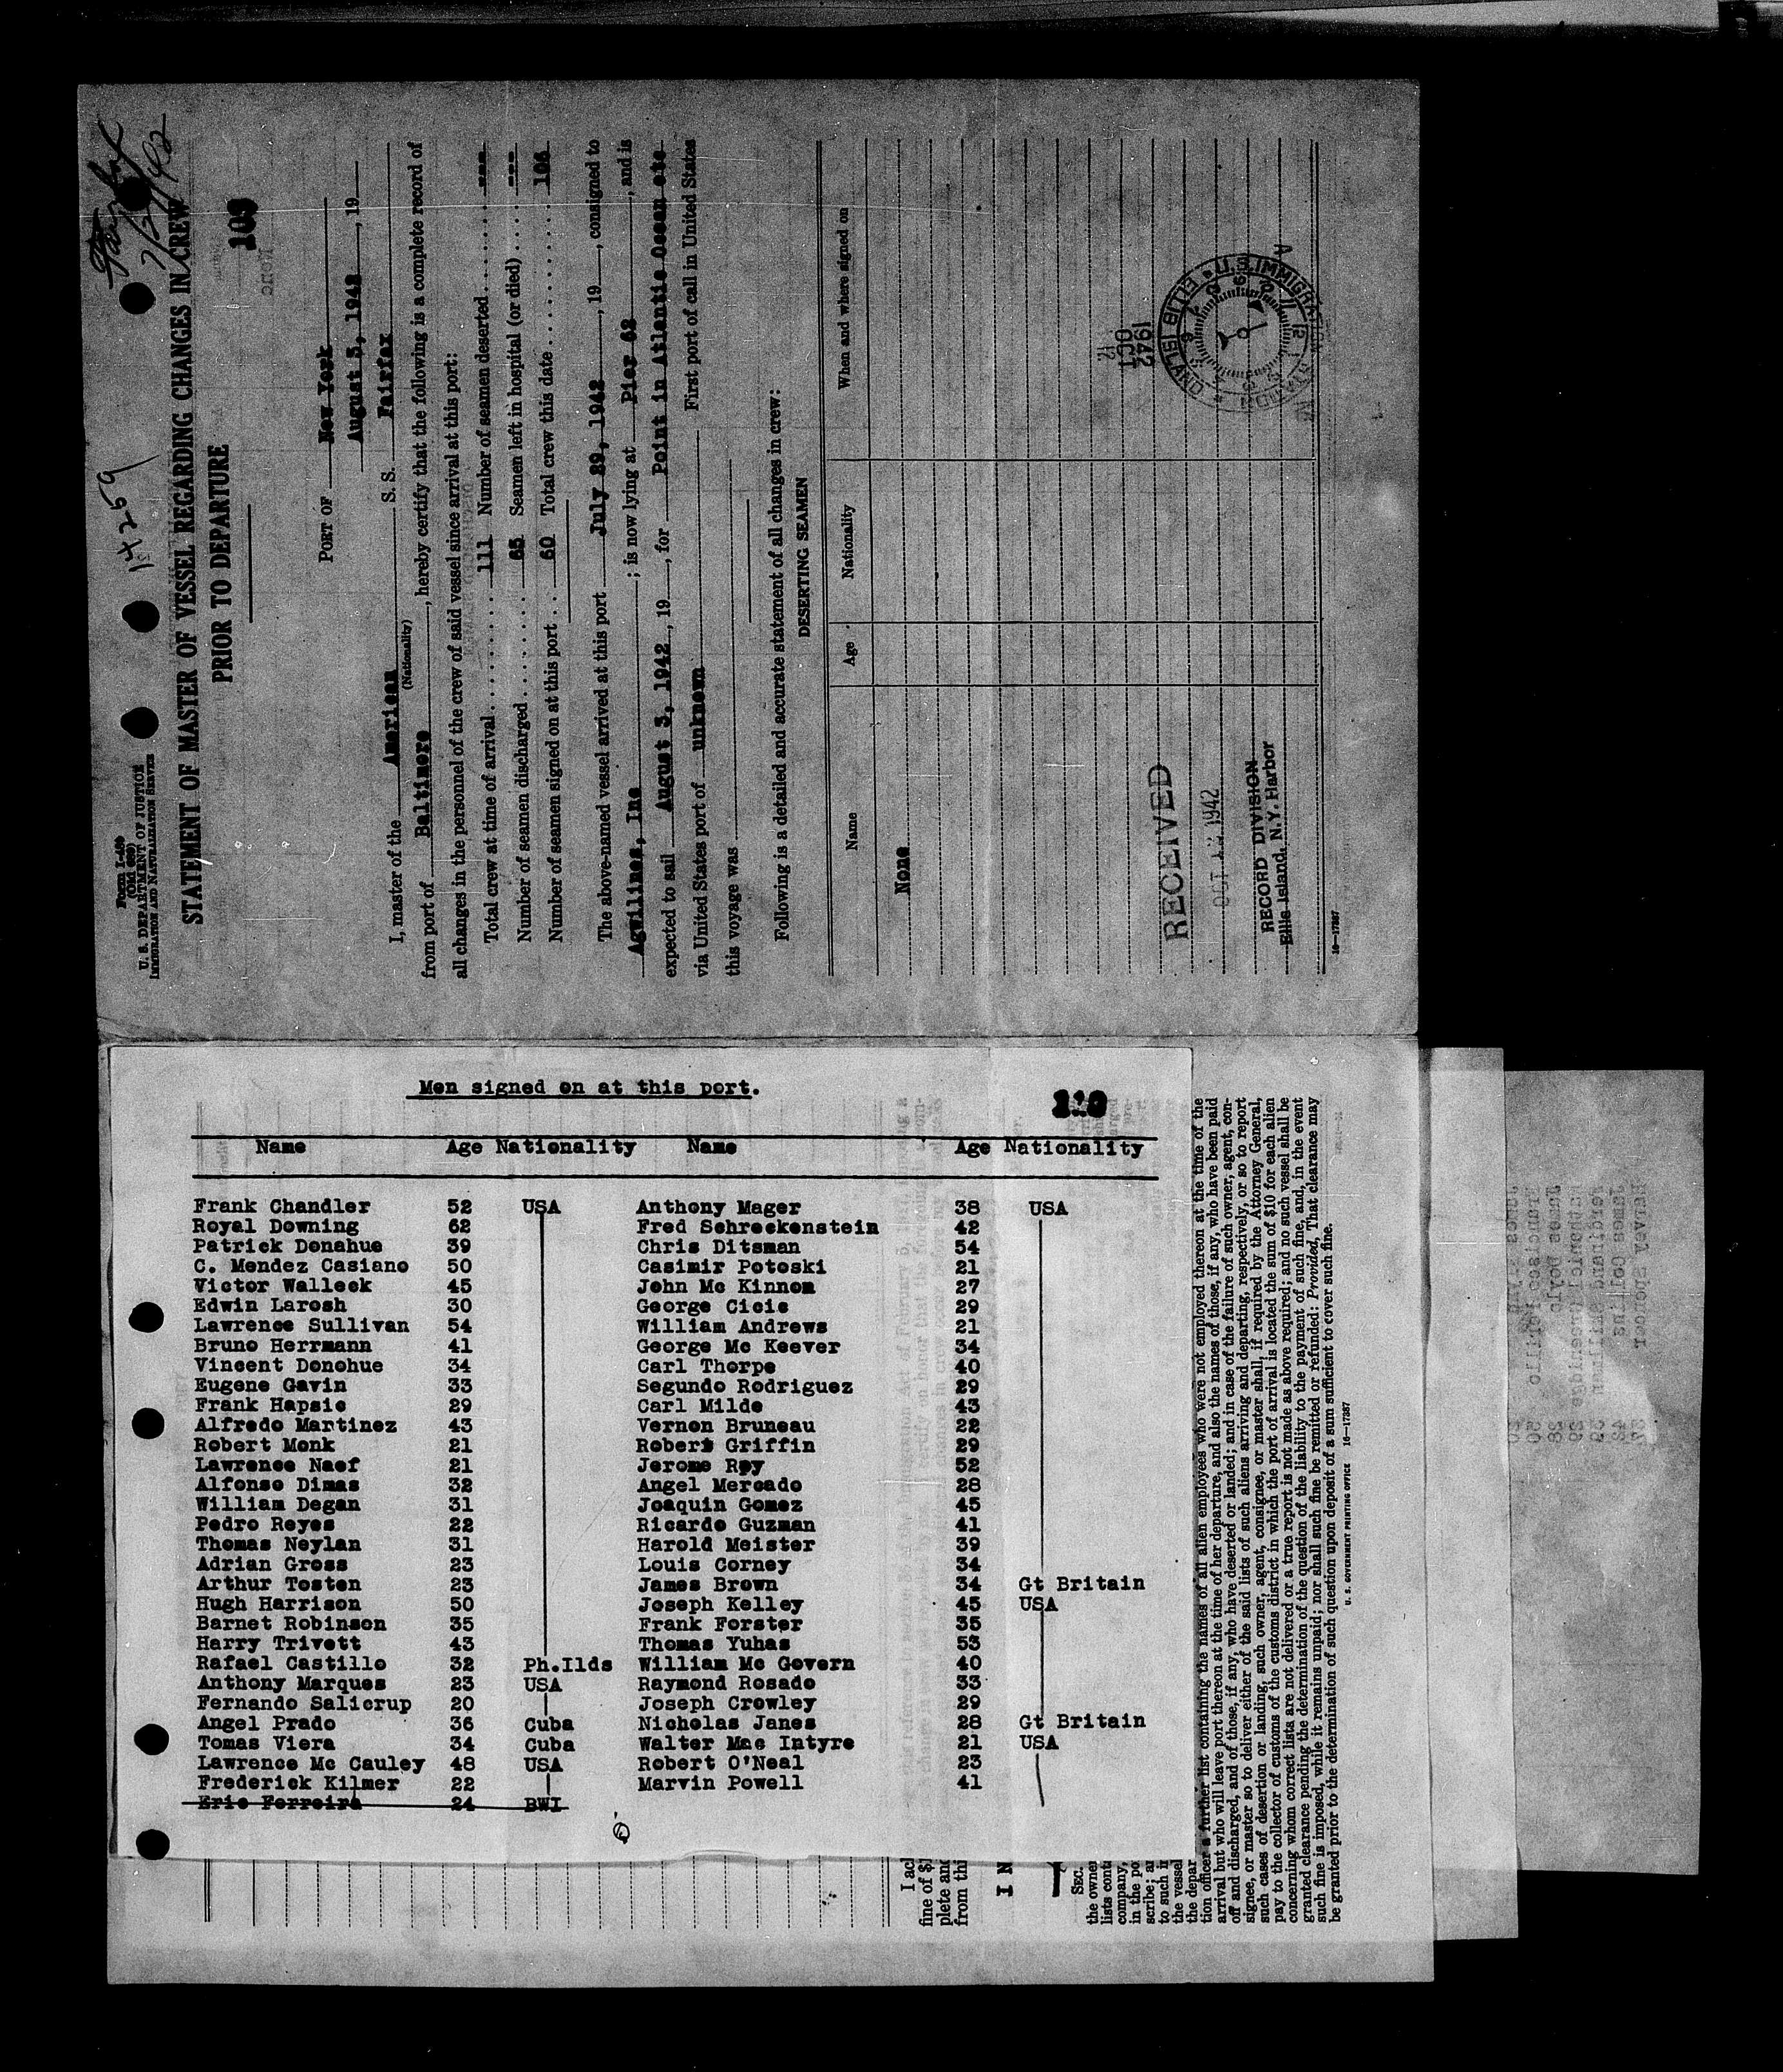 Form I-489
(Old 689)
U. S. DEPARTMENT OF JUSTICE
IMMIGRATION AND NATURALIZATION SERVICE
14259
STATEMENT OF MASTER OF VESSEL REGARDING CHANGES IN CREW
PRIOR TO DEPARTURE
PORT OF New York
August 3, 1942, 19
I, master of the American S. S. Fairfax
(Nationality)
from port of Baltimore, hereby certify that the following is a complete record of
all changes in the personnel of the crew of said vessel since arrival at this port:
Total crew at time of arrival 111 Number of seamen deserted ---
Number of seamen discharged 65 Seamen left in hospital (or died) ---
Number of seamen signed on at this port 60 Total crew this date 106
The above-named vessel arrived at this port July 29, 1942, 19, consigned to
Agwilines, Inc; is now lying at Pier 62, and is
expected to sail August 3, 1942, 19, for Point in Atlantic Ocean etc
via United States port of unknown First port of call in United States
this voyage was
Following is a detailed and accurate statement of all changes in crew:
DESERTING SEAMEN
Name Age Nationality When and where signed on
None
RECEIVED
OCT 12 1942
RECORD DIVISION
Ellis Island, N.Y. Harbor
1942
OCT
12
U.S. IMMIGRATION
ELLIS ISLAND
16—17387
Men signed on at this port.
Name Age Nationality Name Age Nationality
Frank Chandler 52 USA Anthony Mager 38 USA
Royal Downing 62 Fred Schreckenstein 42
Patrick Donahue 39 Chris Ditsman 54
C. Mendez Casiano 50 Casimir Potoski 21
Victor Walleck 45 John Mc Kinnom 27
Edwin Larosh 30 George Cicic 29
Lawrence Sullivan 54 William Andrews 21
Bruno Herrmann 41 George Mc Keever 34
Vincent Donohue 34 Carl Thorpe 40
Eugene Gavin 33 Segundo Rodriguez 29
Frank Hapsic 29 Carl Milde 43
Alfredo Martinez 43 Vernon Bruneau 22
Robert Monk 21 Robert Griffin 29
Lawrence Naef 21 Jerome Roy 52
Alfonso Dimas 32 Angel Mercado 28
William Degan 31 Joaquin Gomez 45
Pedro Reyes 22 Ricardo Guzman 41
Thomas Neylan 31 Harold Meister 39
Adrian Gross 23 Louis Corney 34
Arthur Tosten 23 James Brown 34 Gt Britain
Hugh Harrison 50 Joseph Kelley 45 USA
Barnet Robinson 35 Frank Forster 35
Harry Trivett 43 Thomas Yuhas 53
Rafael Castillo 32 Ph.Ilds William Mc Govern 40
Anthony Marques 23 USA Raymond Rosado 33
Fernando Salicrup 20 Joseph Crowley 29
Angel Prado 36 Cuba Nicholas Janes 28 Gt Britain
Tomas Viera 34 Cuba Walter Mac Intyre 21 USA
Lawrence Mc Cauley 48 USA Robert O'Neal 23
Frederick Kilmer 22 Marvin Powell 41
Eric Ferreira 24 BWI
I ac
fine of $
plete and
from thi
SEC.
the owner
lists cont
company,
in the po
scribe; a
to such i
the vessel
the depar
tion officer a further list containing the names of all alien employees who were not employed thereon at the time of the
arrival but who will leave port thereon at the time of her departure, and also the names of those, if any, who have been paid
off and discharged, and of those, if any, who have deserted or landed; and in case of the failure of such owner, agent, con-
signee, or master so to deliver either of the said lists of such aliens arriving and departing, respectively, or so to report
such cases of desertion or landing, such owner, agent, consignee, or master shall, if required by the Attorney General,
pay to the collector of customs of the customs district in which the port of arrival is located the sum of $10 for each alien
concerning whom correct lists are not delivered or a true report is not made as above required; and no such vessel shall be
granted clearance pending the determination of the question of the liability to the payment of such fine, and, in the event
such fine is imposed, while it remains unpaid; nor shall such fine be remitted or refunded: Provided, That clearance may
be granted prior to the determination of such question upon deposit of a sum sufficient to cover such fine.
U. S. GOVERNMENT PRINTING OFFICE 16—17387